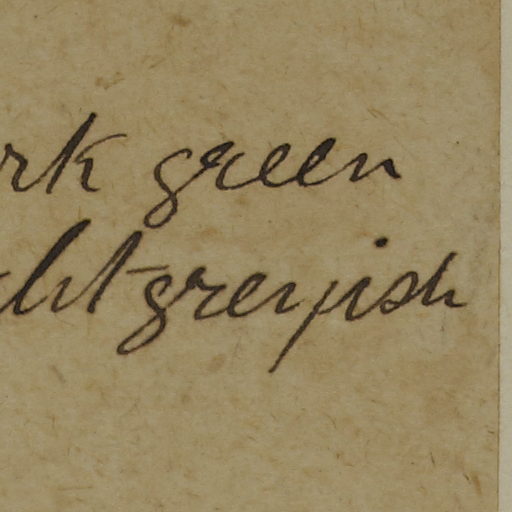 rk green
ght-greyish